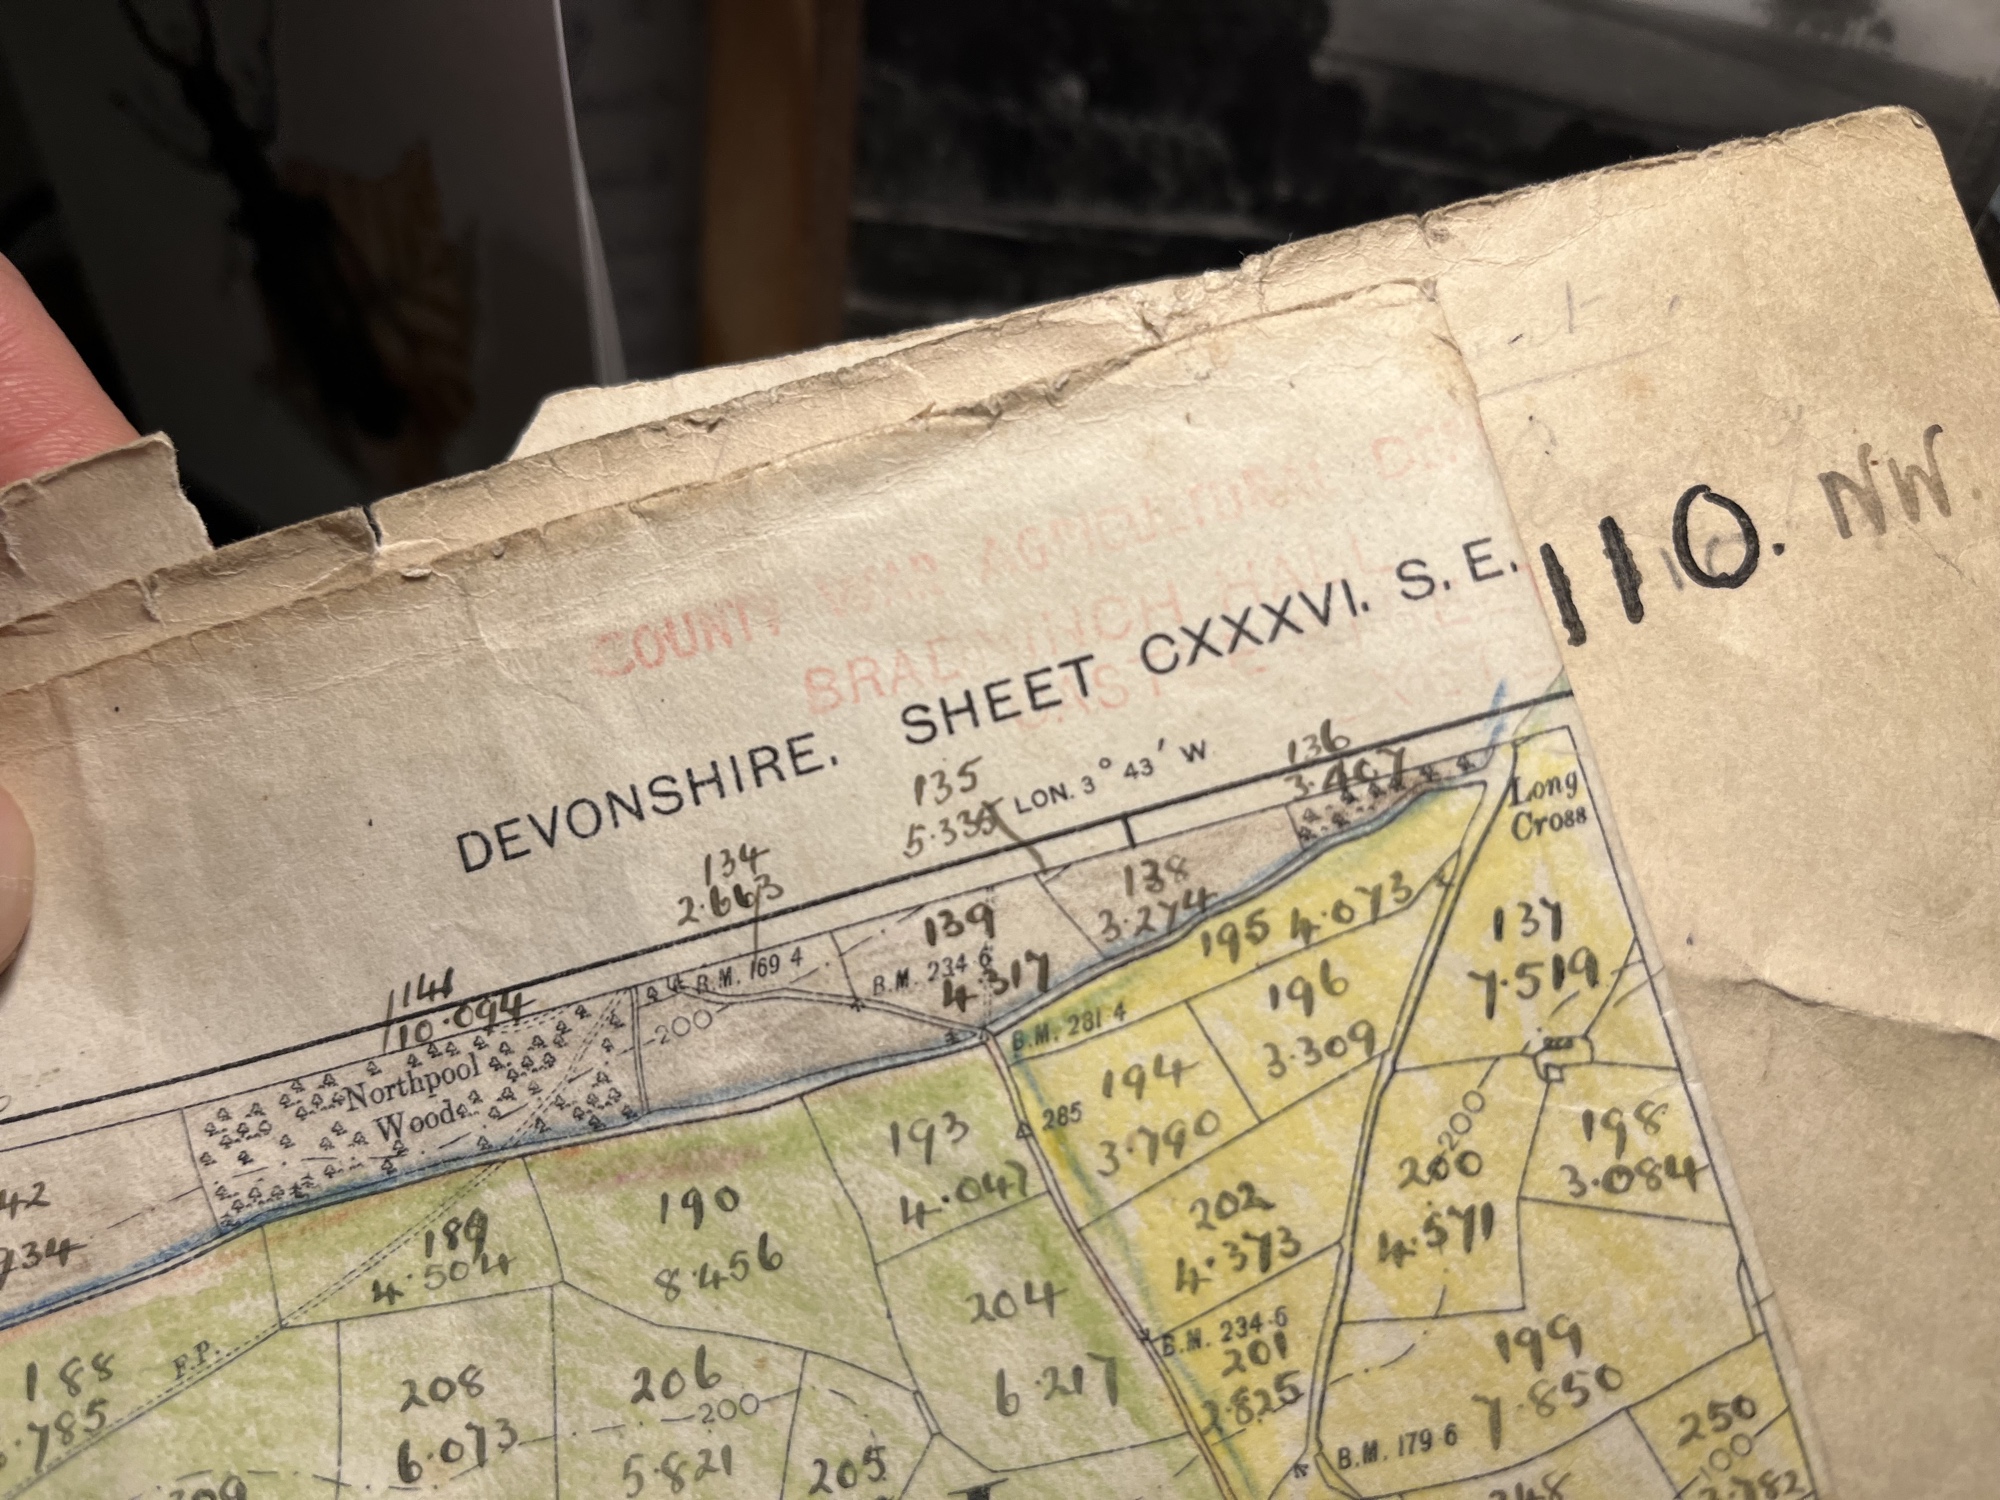 COUNTY WAR AGRICULTURAL
BRADNINCH HALL
CASTLE
DEVONSHIRE. SHEET CXXXVI. S. E.
110. NW.
LON. 3° 43′ W
134
2.663
135
5.335
136
3.407
Long
Cross
138
3.274
139
4.317
B.M. 169.4
B.M. 234.6
141
10.094
Northpool
Wood
200
B.M. 281.4
195 4.073
137
7.519
196
3.309
194
3.790
285
193
4.047
198
3.084
200
200
4.571
202
4.373
190
8.456
189
4.504
42
934
204
6.217
B.M. 234.6
201
2.825
199
7.850
188
.785
F.P.
208
6.073
206
200
5.821
205
B.M. 179.6
250
100
248